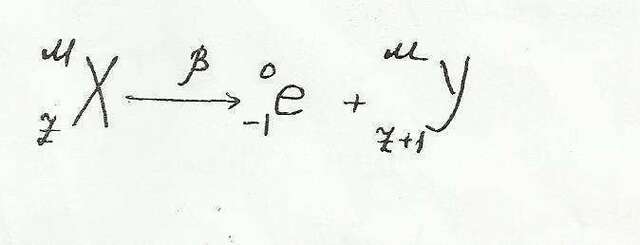 ᴹ_Z X —β→ ⁰_-1 e + ᴹ_Z+1 Y